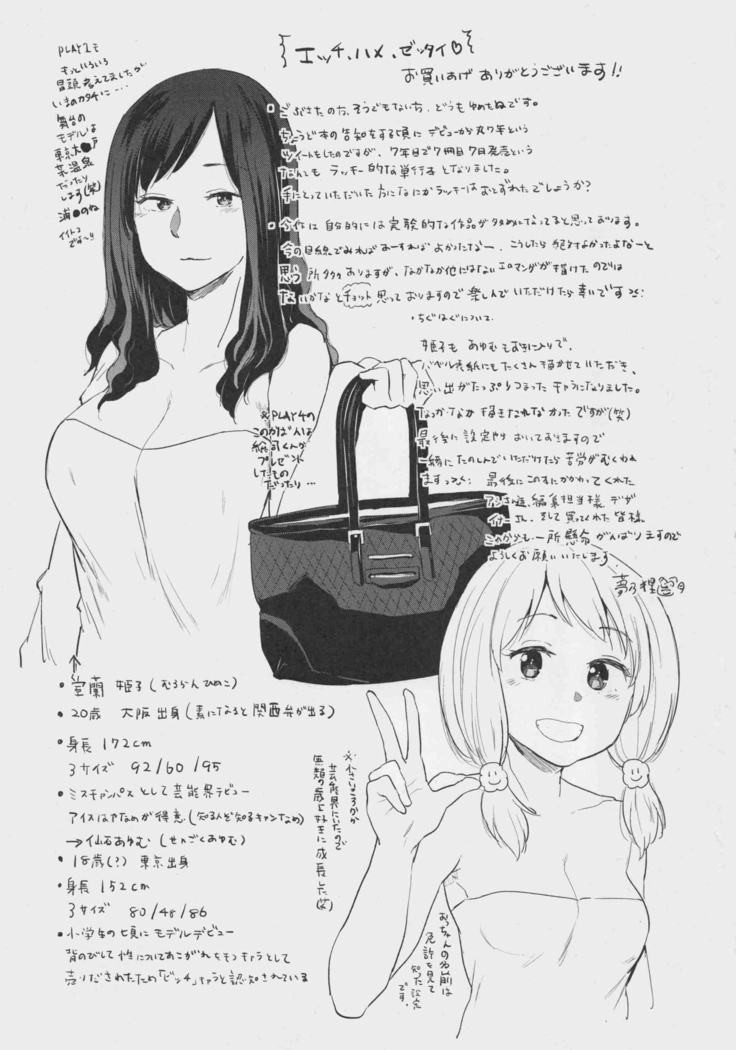 エッチ、ハメ、ゼッタイ♡
お買いあげ ありがとうございます!!
PLAY1も
もっといろいろ
冒頭考えてましたが
いまのカタチに…
舞台の
モデルは
東京大●戸
某温泉
だったり
します(笑)
浦●のね
イイトコ
だな〜!!
・ごぶさたの方、そうでもない方、どうもゆめたぬです。
ちょうど本の告知をする頃に デビューから丸7年という
ツイートをしたのですが、7年目で7冊目7月発売という
なんとも ラッキー的な単行本となりました。
手にとっていただいた方になにかラッキーはおとずれたでしょうか?
・今作は 自分的には実験的な作品が多めになってると思っております。
今の目線でみればあーすればよかったなー、こうしたら絶対よかったよなーと
思う所多々ありますが、なかなか他にはないエロマンガが描けたのでは
ないかなとチョット思っておりますので楽しんでいただけたら幸いです
・ちぐはぐについて
姫子も あゆむもお気に入りで、
バベル表紙にもたくさん描かせていただき、
思い出がたっぷりつまったキャラになりました。
なかなか描きなれなかったですが(笑)
最後に設定やり おいておきますので
一緒にたのしんでいただけたら苦労がむくわれ
ます
最後にこの本にかかわってくれた
アシさま達、編集担当様、デザ
イナー 様、そして買ってくれた皆様。
これからも一所懸命がんばりますので
よろしくお願いいたします
夢乃狸
※PLAY4の
このかばんは
紙司くんが
プレゼント
したもの
だったり…
・室蘭 姫子(むろらんひめこ)
・20歳 大阪出身(素になると関西弁が出る)
・身長 172cm
3サイズ 92/60/95
・ミスキャンパスとして芸能界デビュー
アイスはやなめが得意(知る人ぞ知るキャンなめ)
→仙石あゆむ(せんごくあゆむ)
・18歳(?) 東京出身
・身長 152cm
3サイズ 80/48/86
・小学生の頃に モデルデビュー
背のびして性についてあこがれをもつキャラとして
売りだされたため「ビッチ」キャラと認知されている
※小さいころから
芸能界にいたので
無類の歳上好きに成長した(笑)
おっちゃんの名前は
免許を見て
知った設定
です。